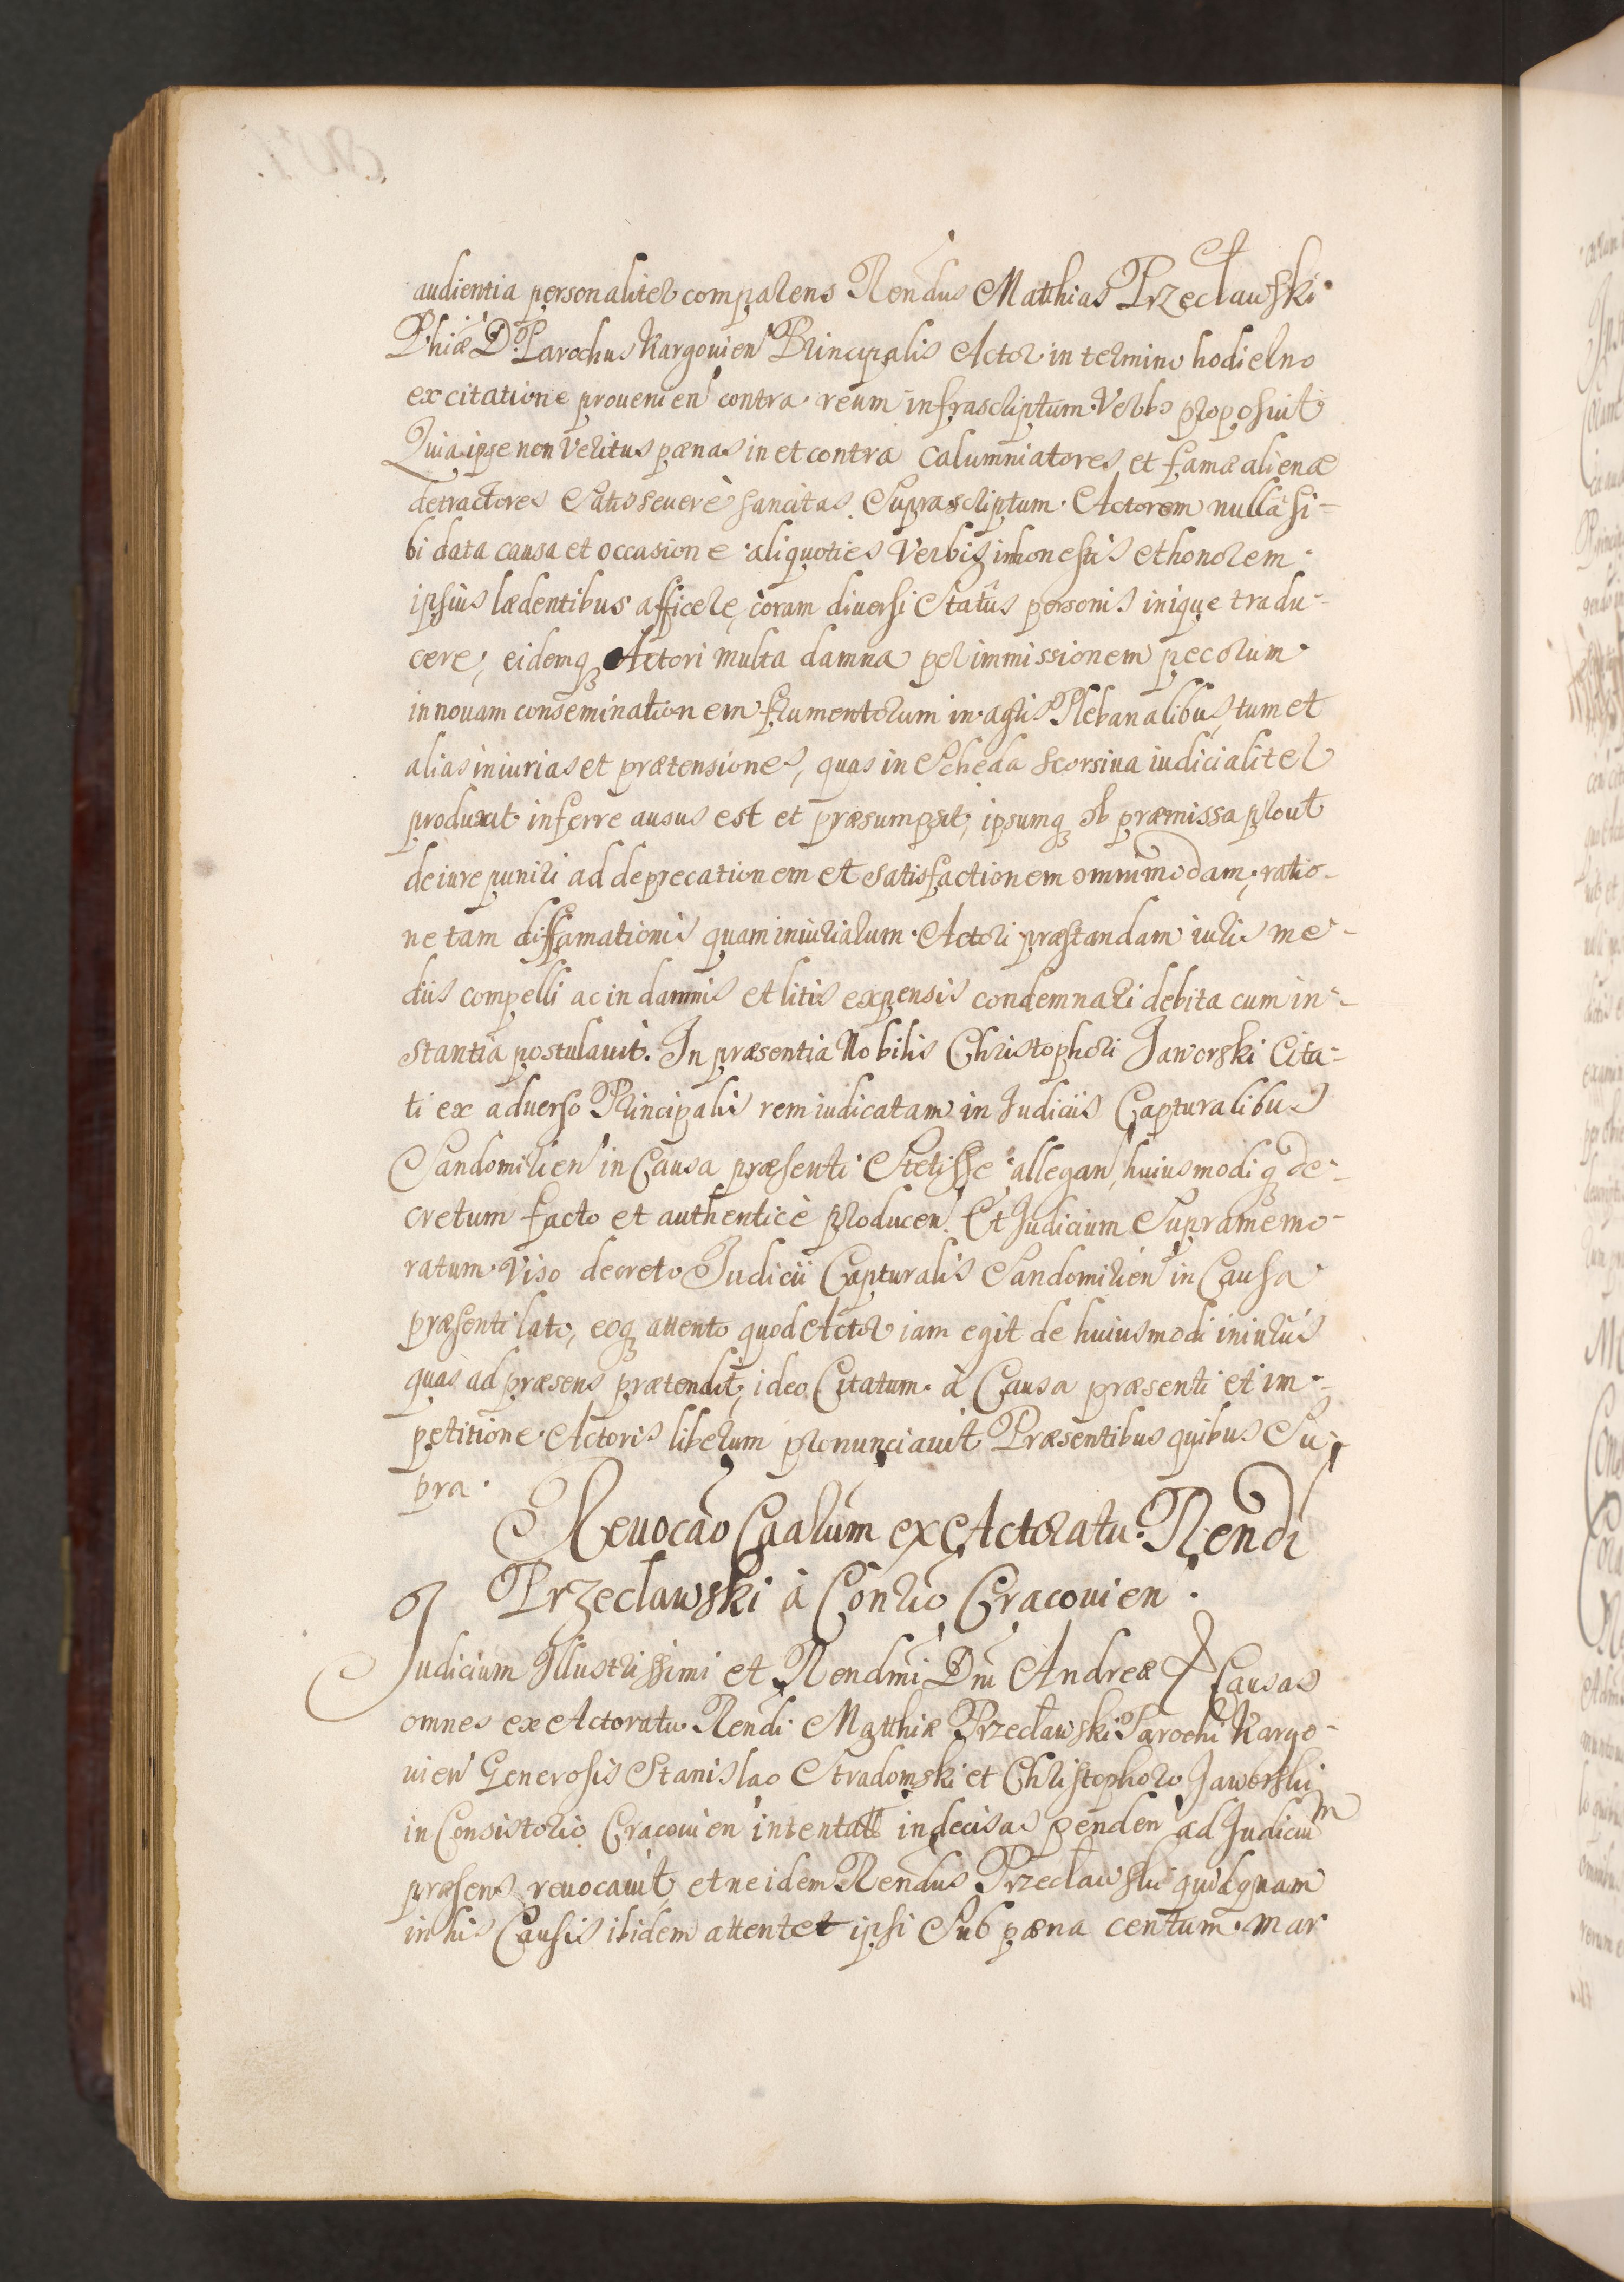 audientia personaliter comparens Rendus Matthias Przecławski
Phiæ D. Parochus Kargouien Principalis Actor in termino hodierno
ex citatione prouenien contra reum infrascriptum Verbo proposuit
Quia ipse non veritus pænas in et contra calumniatores et famæ alienæ
detractores satis seuerè sancitas suprascriptum Actorem nulla si-
bi data causa et occasione aliquoties verbis inhonestis et honorem
ipsius lædentibus afficere, coram diuersi status personis inique tradu-
cere, eidemq Actori multa damna per immissionem pecorum
in nouam conseminationem frumentorum in agris Plebanalibus, tum et
alias iniurias et prætensiones, quas in scheda seorsiua iudicialiter
produxit inferre ausus est et præsumpsit, ipsumq ob præmissa prout
de iure puniri ad deprecationem et satisfactionem omnimodam, ratio-
ne tam diffamationis quam iniuriarum Actori præstandam iuris me-
diis compelli ac in damnis et litis expensis condemnari debita cum in-
stantia postulauit. In præsentia Nobilis Christophori Jaworski Cita-
ti ex aduerso Principalis rem iudicatam in Judiciis Capturalibus
Sandomirien in Causa præsenti stetisse allegan, huiusmodiq de-
cretum facto et authenticè producen. Et Judicium supramemo-
ratum viso decreto Judicii Capturalis Sandomirien in Causa
præsenti lato, eoq attento quod Actor iam egit de huiusmodi iniuriis
quas ad præsens prætendit, ideo Citatum à Causa præsenti et im-
petitione Actoris liberum pronunciauit Præsentibus quibus Su-
pra.
Reuocao Caarum ex Actoratu Rendi
Przeclawski à Conrio Cracouien.
Judicium Illustrissimi et Rendmi Dni Andreæ Causas
omnes ex Actoratu Rendi Matthiæ Przecławski Parochi Kargo-
uien Generosis Stanislao Stradomski et Christophoro Jaworski
in Consistorio Cracouien intentatas indecisas penden ad Judicium
præsens reuocauit, et ne idem Rendus Przecławski quidquam
in his Causis ibidem attentet ipsi sub pæna centum mar